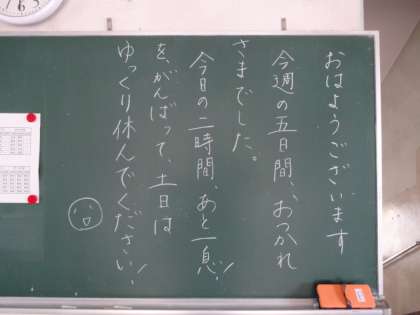 おはようございます
今週の五日間、おつかれ
さまでした。
今日の二時間、あと一息!
を、がんばって、土日は
ゆっくり休んでください!